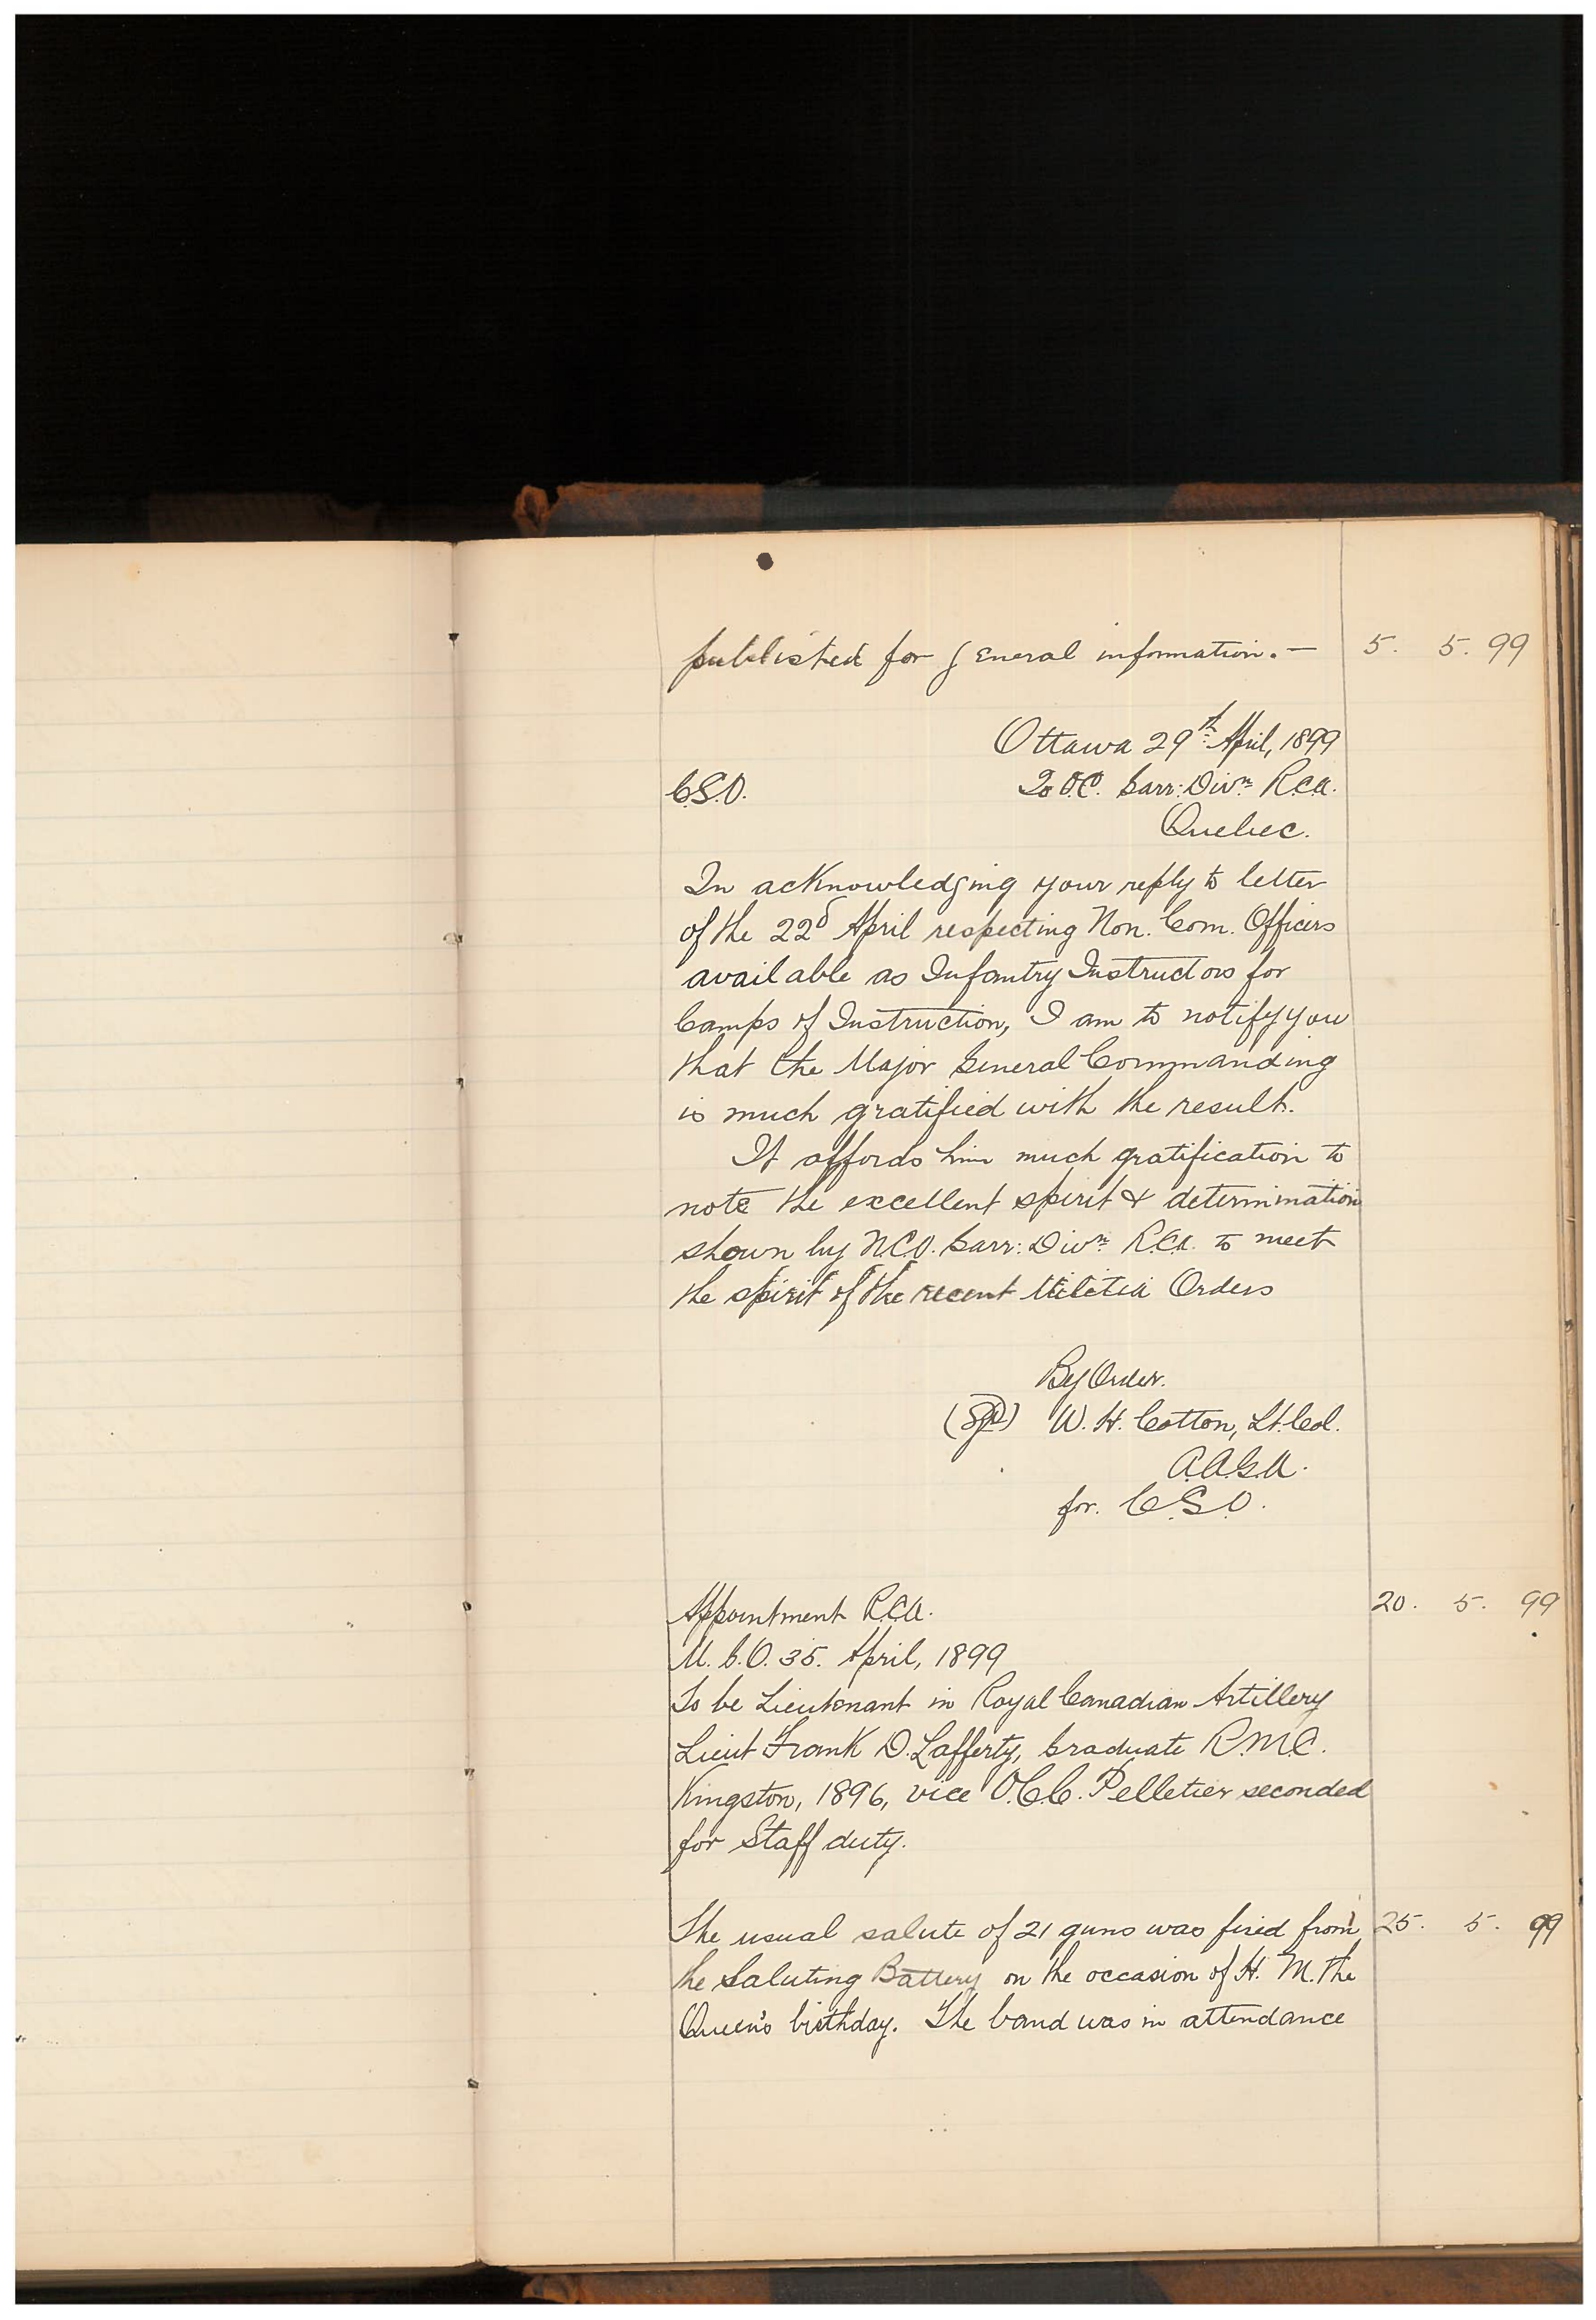 published for general information. — 5. 5. 99
Ottawa 29th April, 1899
C.S.O. To O.C. Garr: Divn R.C.A.
Quebec.
In acknowledging your reply to letter
of the 22d April respecting Non. Com. Officers
available as Infantry Instructors for
Camps of Instruction, I am to notify you
that the Major General Commanding
is much gratified with the result.
It affords him much gratification to
note the excellent spirit & determination
shown by N.C.O. Garr: Divn R.C.A. to meet
the spirit of the recent Militia Orders
By Order.
(Sgd) W. H. Cotton, Lt. Col.
A.A.G.A.
for. C.S.O.
Appointment R.C.A. 20. 5. 99
M.G.O. 35. April, 1899
To be Lieutenant in Royal Canadian Artillery
Lieut Frank D. Lafferty, Graduate R.M.C.
Kingston, 1896, vice O.C.C. Pelletier seconded
for Staff duty.
The usual salute of 21 guns was fired from 25. 5. 99
the Saluting Battery on the occasion of H. M. the
Queen's birthday. The band was in attendance